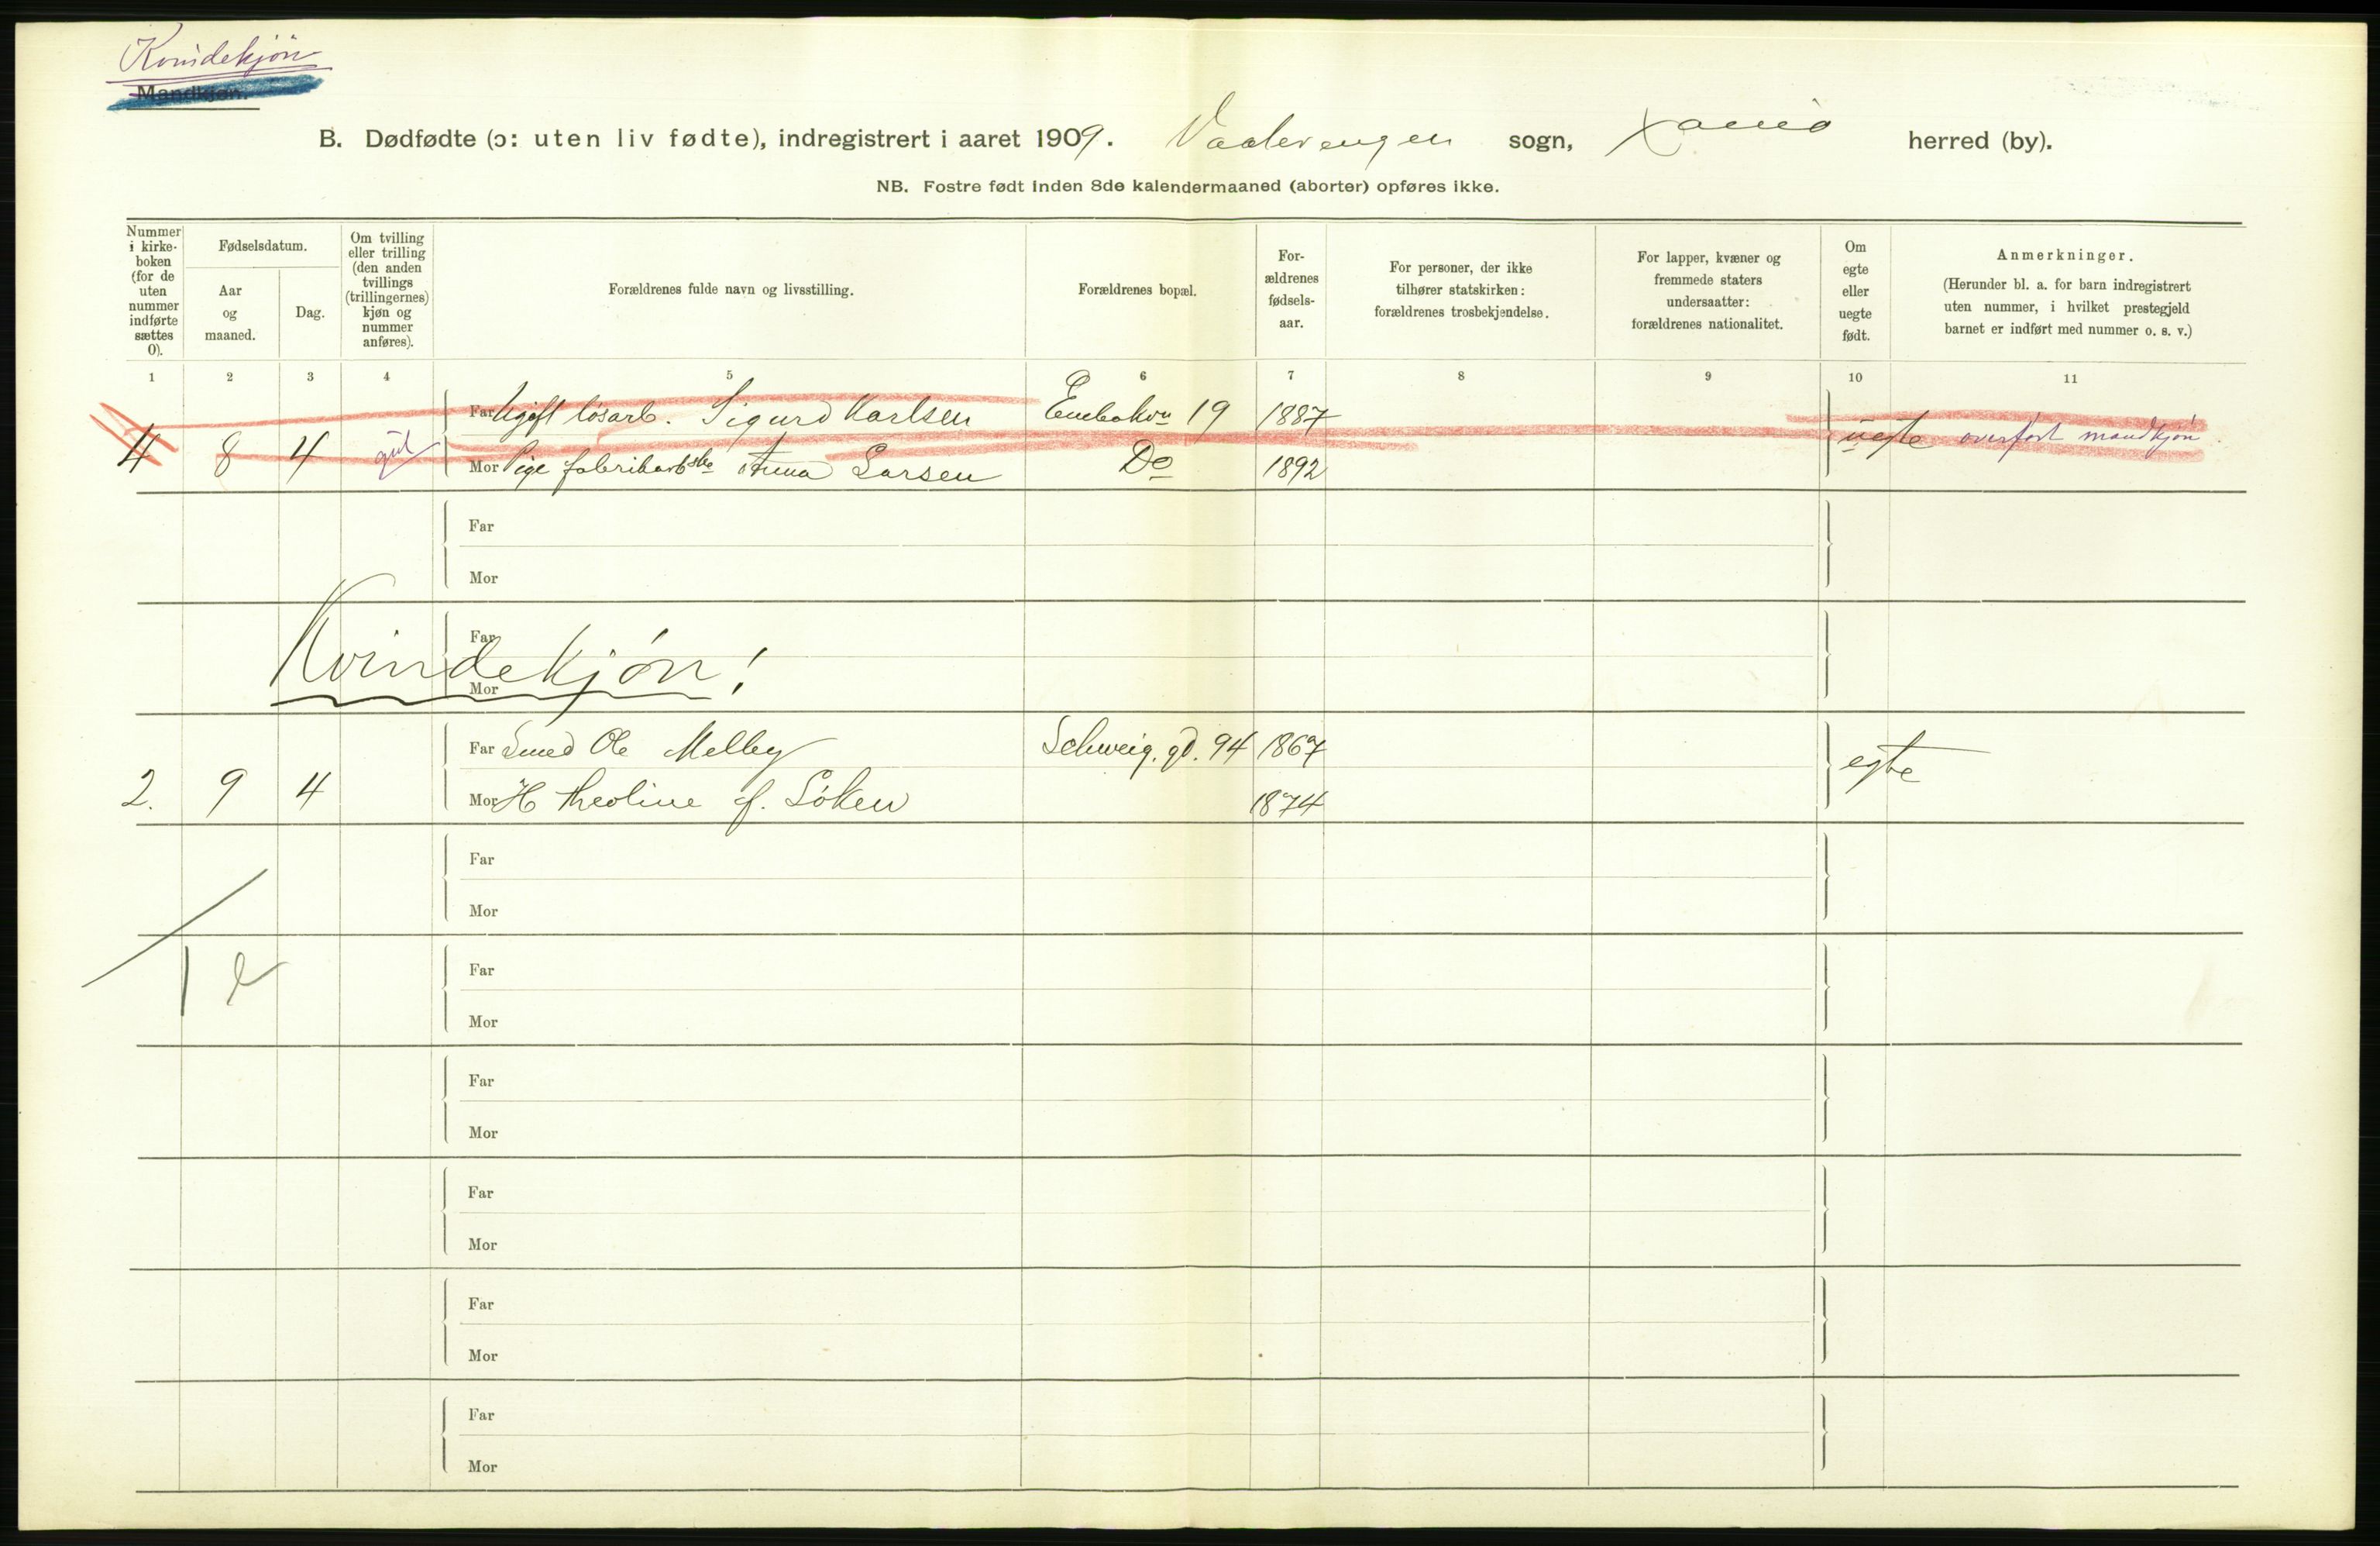 Kvindekjön
Mandkjøn.
B. Dødfødte (ɔ: uten liv fødte), indregistrert i aaret 1909. Vaalerengen sogn, Xania herred (by).
NB. Fostre født inden 8de kalendermaaned (aborter) opføres ikke.
Nummer i kirke-boken (for de uten nummer indførte sættes 0).
Fødselsdatum.
Aar og maaned.
Dag.
Om tvilling eller trilling (den anden tvillings (trillingernes) kjøn og nummer anføres).
Forældrenes fulde navn og livsstilling.
Forældrenes bopæl.
For-ældrenes fødsels-aar.
For personer, der ikke tilhører statskirken: forældrenes trosbekjendelse.
For lapper, kvæner og fremmede staters undersaatter: forældrenes nationalitet.
Om egte eller uegte født.
Anmerkninger.
(Herunder bl. a. for barn indregistrert uten nummer, i hvilket prestegjeld barnet er indført med nummer o. s. v.)
1 2 3 4 5 6 7 8 9 10 11
Far Ugift løsarb. Sigurd Karlsen Enebakvn 19 1887
4 8 4 gut uegte overført mandkjön
Mor Pige fabrikarbske Anna Larsen Do 1892
Far
Mor
Far
Kvindekjön!
Mor
Far Smed Ole Melby Schweig. gd. 94 1867
2. 9 4 egte
Mor H Theoline f. Löken 1874
Far
Mor
Far
1 e
Mor
Far
Mor
Far
Mor
Far
Mor
Far
Mor